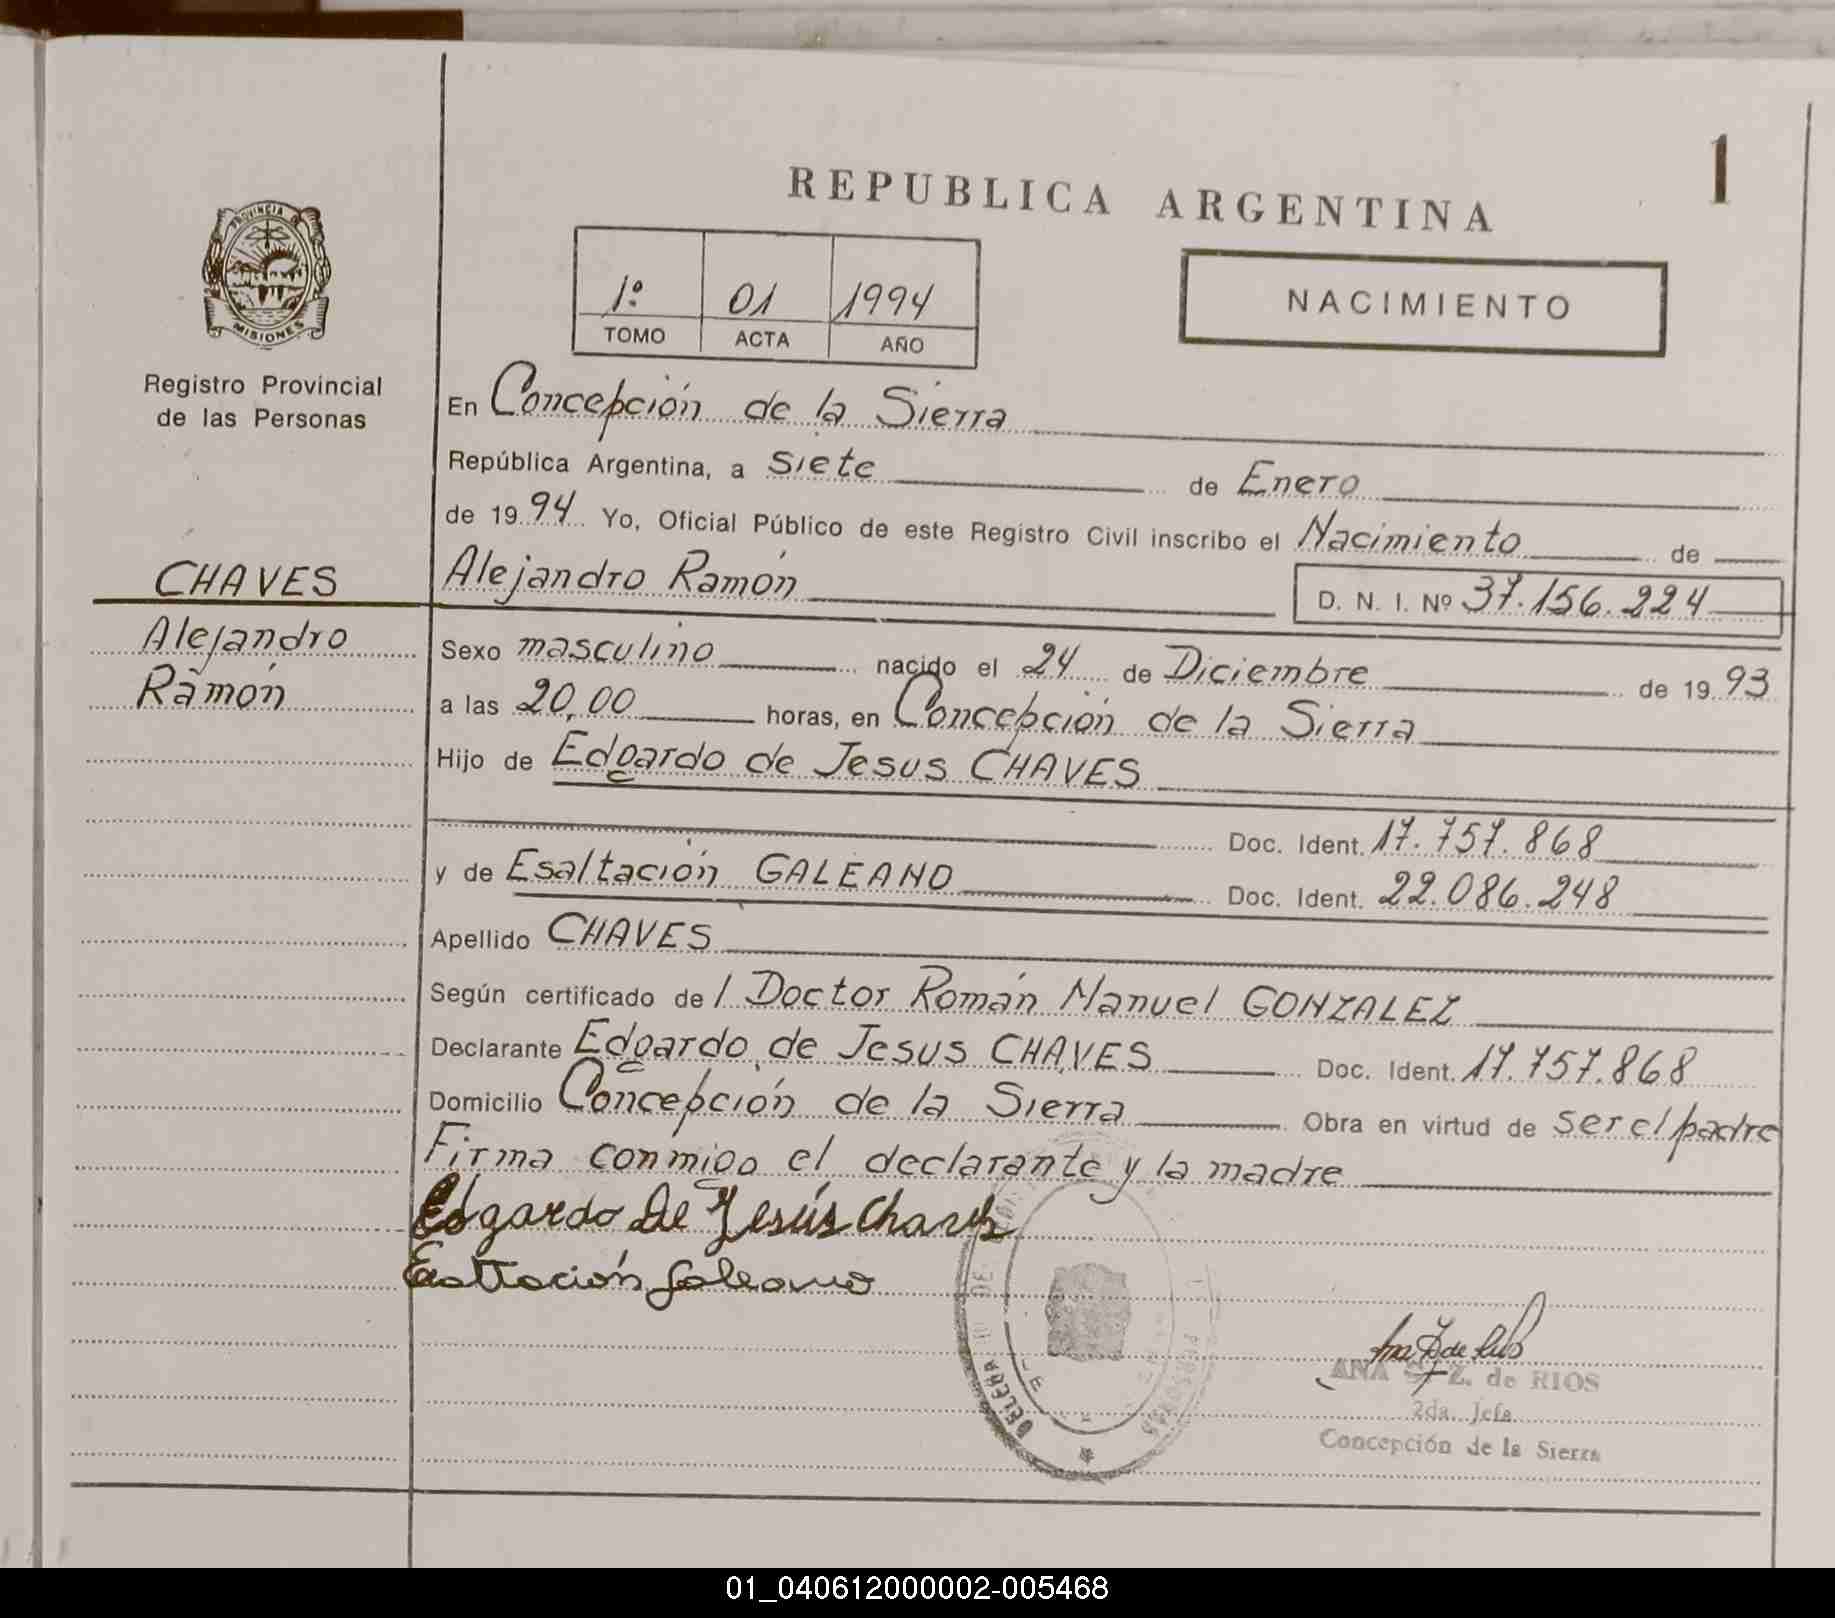 1
REPUBLICA ARGENTINA
PROVINCIA DE
MISIONES
Registro Provincial
de las Personas
1º 01 1994
TOMO ACTA AÑO
NACIMIENTO
En Concepción de la Sierra
República Argentina, a siete de Enero
de 1994 Yo, Oficial Público de este Registro Civil inscribo el Nacimiento de
CHAVES
Alejandro
Ramón
Alejandro Ramón D. N. I. Nº 37.156.224
Sexo masculino nacido el 24 de Diciembre de 1993
a las 20,00 horas, en Concepción de la Sierra
Hijo de Edgardo de Jesus CHAVES
Doc. Ident. 17.757.868
y de Esaltación GALEANO Doc. Ident. 22.086.248
Apellido CHAVES
Según certificado de l Doctor Román Manuel GONZALEZ
Declarante Edgardo de Jesus CHAVES Doc. Ident. 17.757.868
Domicilio Concepción de la Sierra Obra en virtud de ser el padre
Firma conmigo el declarante y la madre
Edgardo De Jesús Chaves
Esaltación Galeano
ANA Z. de RIOS
2da. Jefa
Concepción de la Sierra
01_040612000002-005468